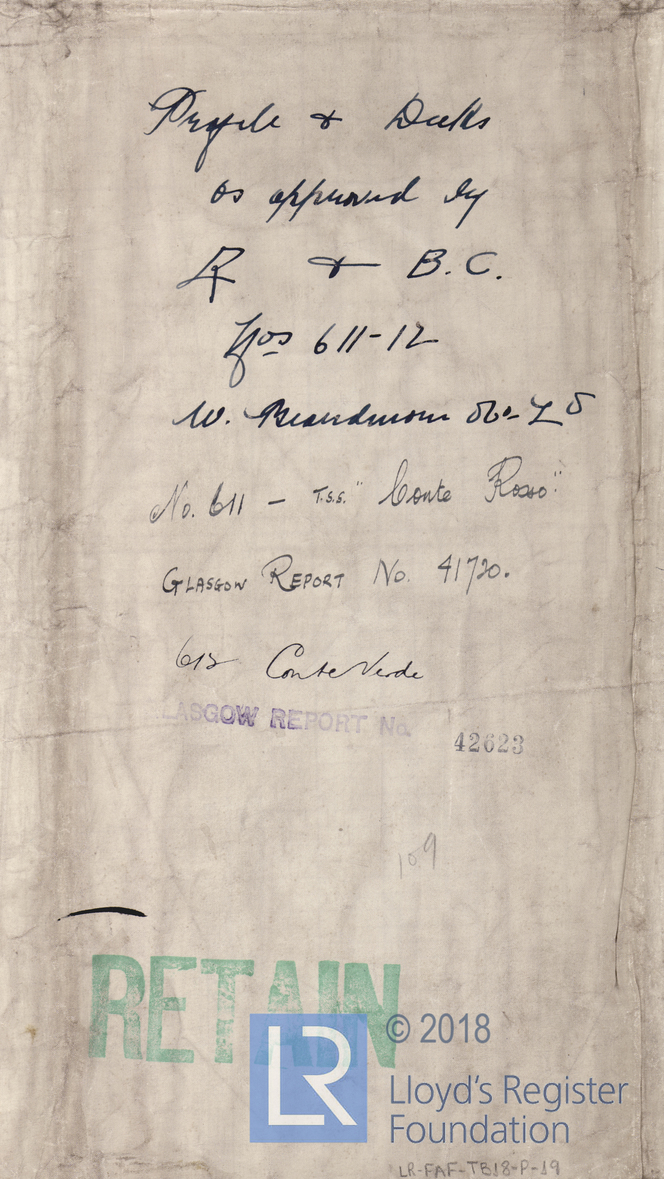 Profile & Decks
as approved by
LR & B.C.
Nos 611-12
W. Beardmore & Co Ld
No. 611 - T.S.S. "Conte Rosso"
GLASGOW REPORT No. 41720.
612 Conte Verde
GLASGOW REPORT No. 42623
109
RETAIN
LR © 2018
Lloyd's Register
Foundation
LR-FAF-TB18-P-19